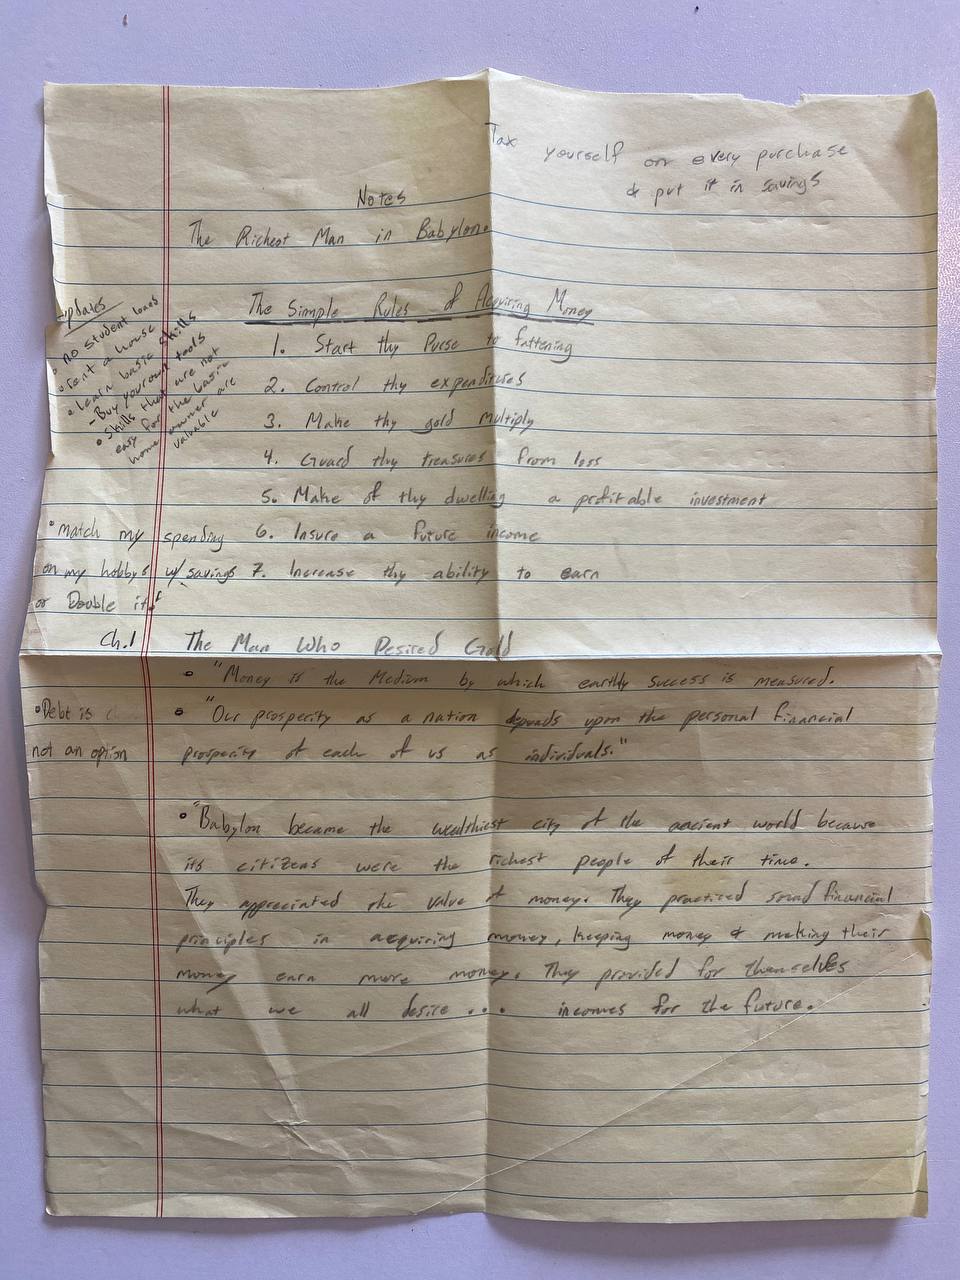 Tax yourself on every purchase
& put it in savings
Notes
The Richest Man in Babylon.
The Simple Rules of Acquiring Money
1. Start thy Purse to fattening
2. Control thy expenditures
3. Make thy gold multiply
4. Guard thy treasures from loss
5. Make of thy dwelling a profitable investment
6. Insure a future income
7. Increase thy ability to earn
updates
• no student loans
• rent a house
• Learn basic skills
- Buy your own tools
• Skills that are not
easy for the basic
home owner are
valuable
• match my spending
on my hobbys w/ savings
or Double it!
Ch.1 The Man Who Desired Gold
• "Money is the Medium by which earthly success is measured.
• "Our prosperity as a nation depends upon the personal financial
prosperity of each of us as individuals."
• Debt is
not an option
• "Babylon became the wealthiest city of the ancient world because
its citizens were the richest people of their time.
They appreciated the value of money. They practiced sound financial
principles in acquiring money, keeping money & making their
money earn more money. They provided for themselves
what we all desire... incomes for the future.